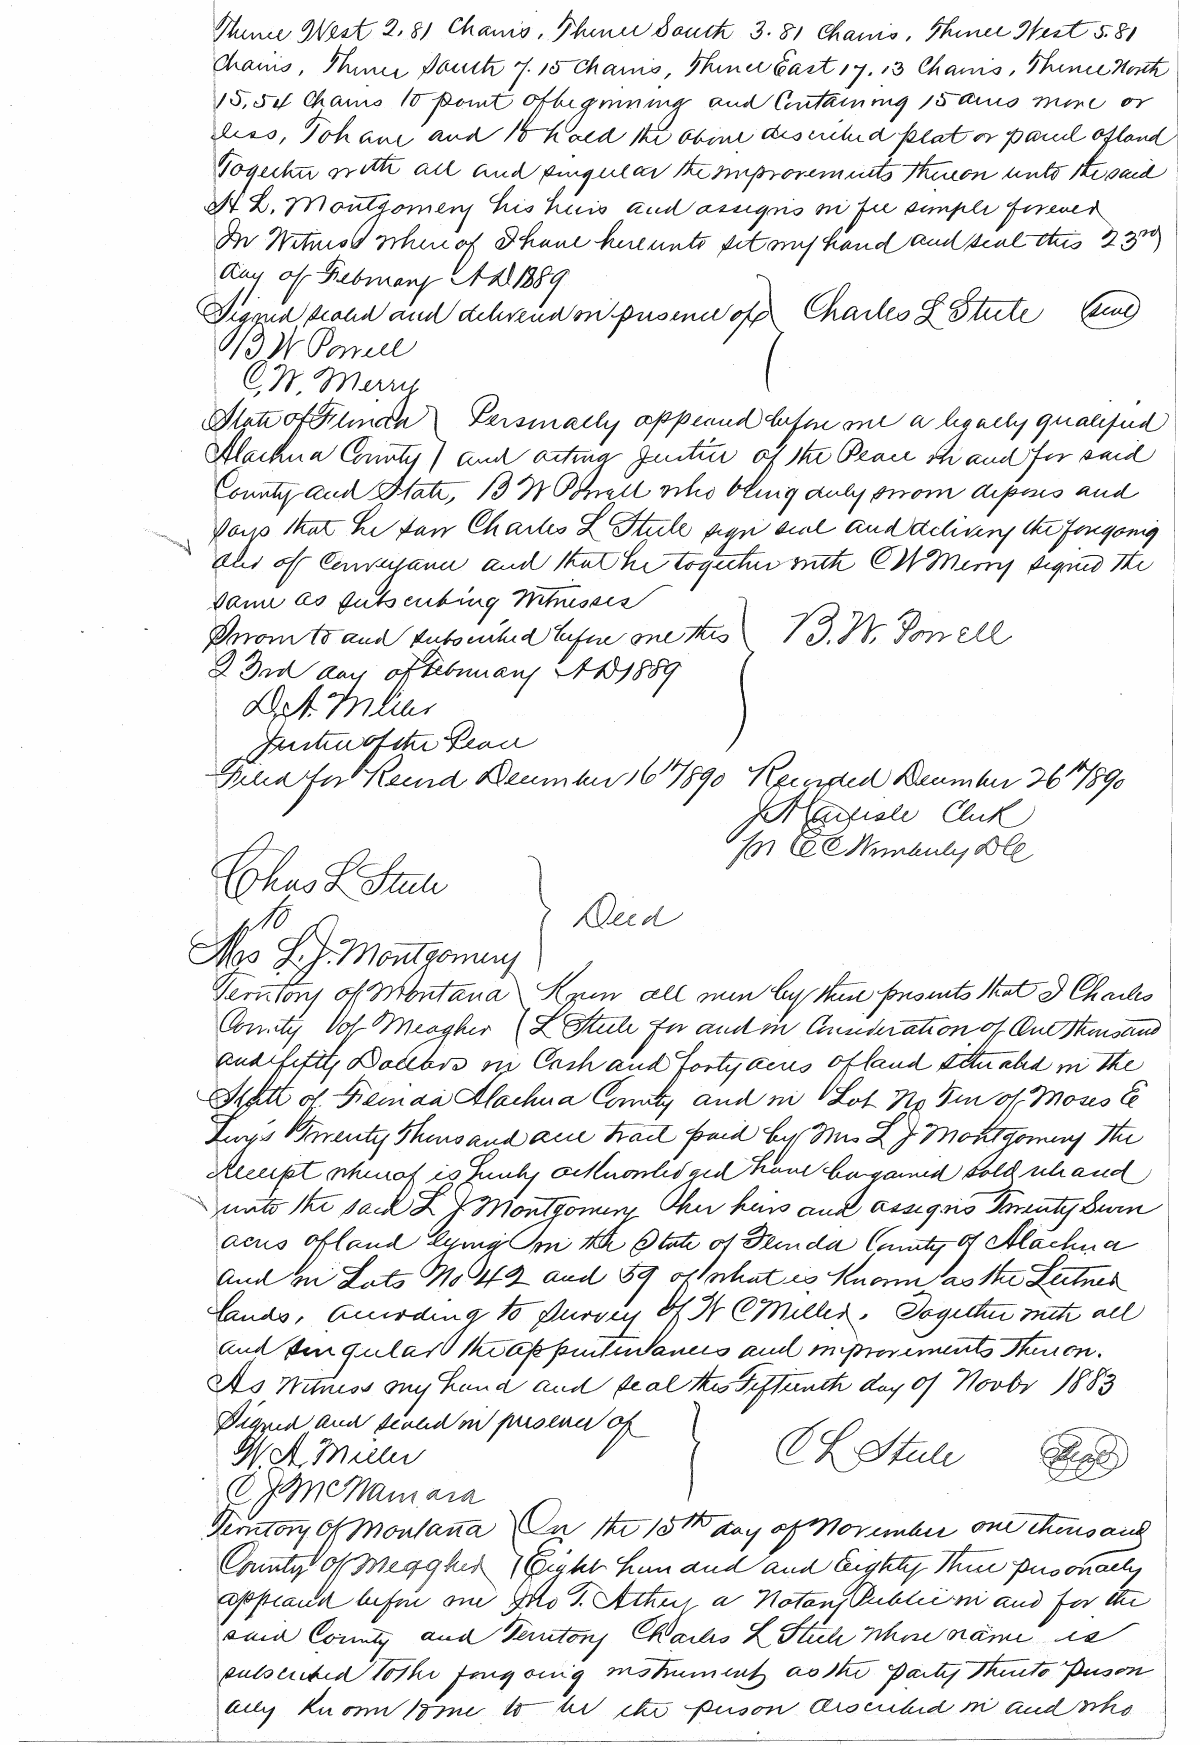 Thence West 2.81 Chains, Thence South 3.81 Chains, Thence West 5.81
Chains, Thence South 7.15 Chains, Thence East 17.13 Chains, Thence North
15.54 Chains to point of beginning and Containing 15 acres more or
less, To have and to hold the above described plat or parcel of land
Together with all and singular the improvements thereon unto the said
A L. Montgomery his heirs and assigns in fee simple forever
In Witness whereof I have hereunto set my hand and seal this 23rd
day of February A D 1889
Signed sealed and delivered in presence of } Charles L Steele (Seal)
B W Powell
C. W. Merry
State of Florida } Personally appeared before me a legally qualified
Alachua County } and acting Justice of the Peace in and for said
County and State, B W Powell who being duly sworn deposes and
says that he saw Charles L Steele sign seal and delivery the foregoing
deed of Conveyance and that he together with C W Merry signed the
same as subscribing Witnesses
Sworn to and subscribed before me this } B. W. Powell
23rd day of February A D 1889
D. A. Miller
Justice of the Peace
Filed for Record December 16th/890 Recorded December 26th/890
J A Carlisle Clerk
pr E C Wimberly D C
Chas L Steele
to } Deed
Mrs L. J. Montgomery
Territory of Montana } Know all men by these presents that I Charles
County of Meagher } L Steele for and in Consideration of One thousand
and fifty Dollars in Cash and forty acres of land situated in the
State of Florida Alachua County and in Lot No Ten of Moses E
Levy's Twenty Thousand acre tract paid by Mrs L J Montgomery the
receipt whereof is hereby acknowledged have bargained sold released
unto the said L J Montgomery her heirs and assigns Twenty Seven
acres of land lying in the State of Florida County of Alachua
and in Lots No 42 and 59 of what is Known as the Leitner
lands, according to Survey of W C Miller. Together with all
and singular the appurtenances and improvements thereon.
As Witness my hand and seal this Fifteenth day of Novbr 1883
Signed and sealed in presence of } C L Steele (Seal)
W. A. Miller
C J McNamara
Territory of Montana } On the 15th day of November one thousand
County of Meagher } Eight hundred and Eighty three personally
appeared before me Jno T. Athey a Notary Public in and for the
said County and Territory Charles L Steele whose name is
subscribed to the foregoing instrument as the party thereto person
ally known to me to be the person described in and who